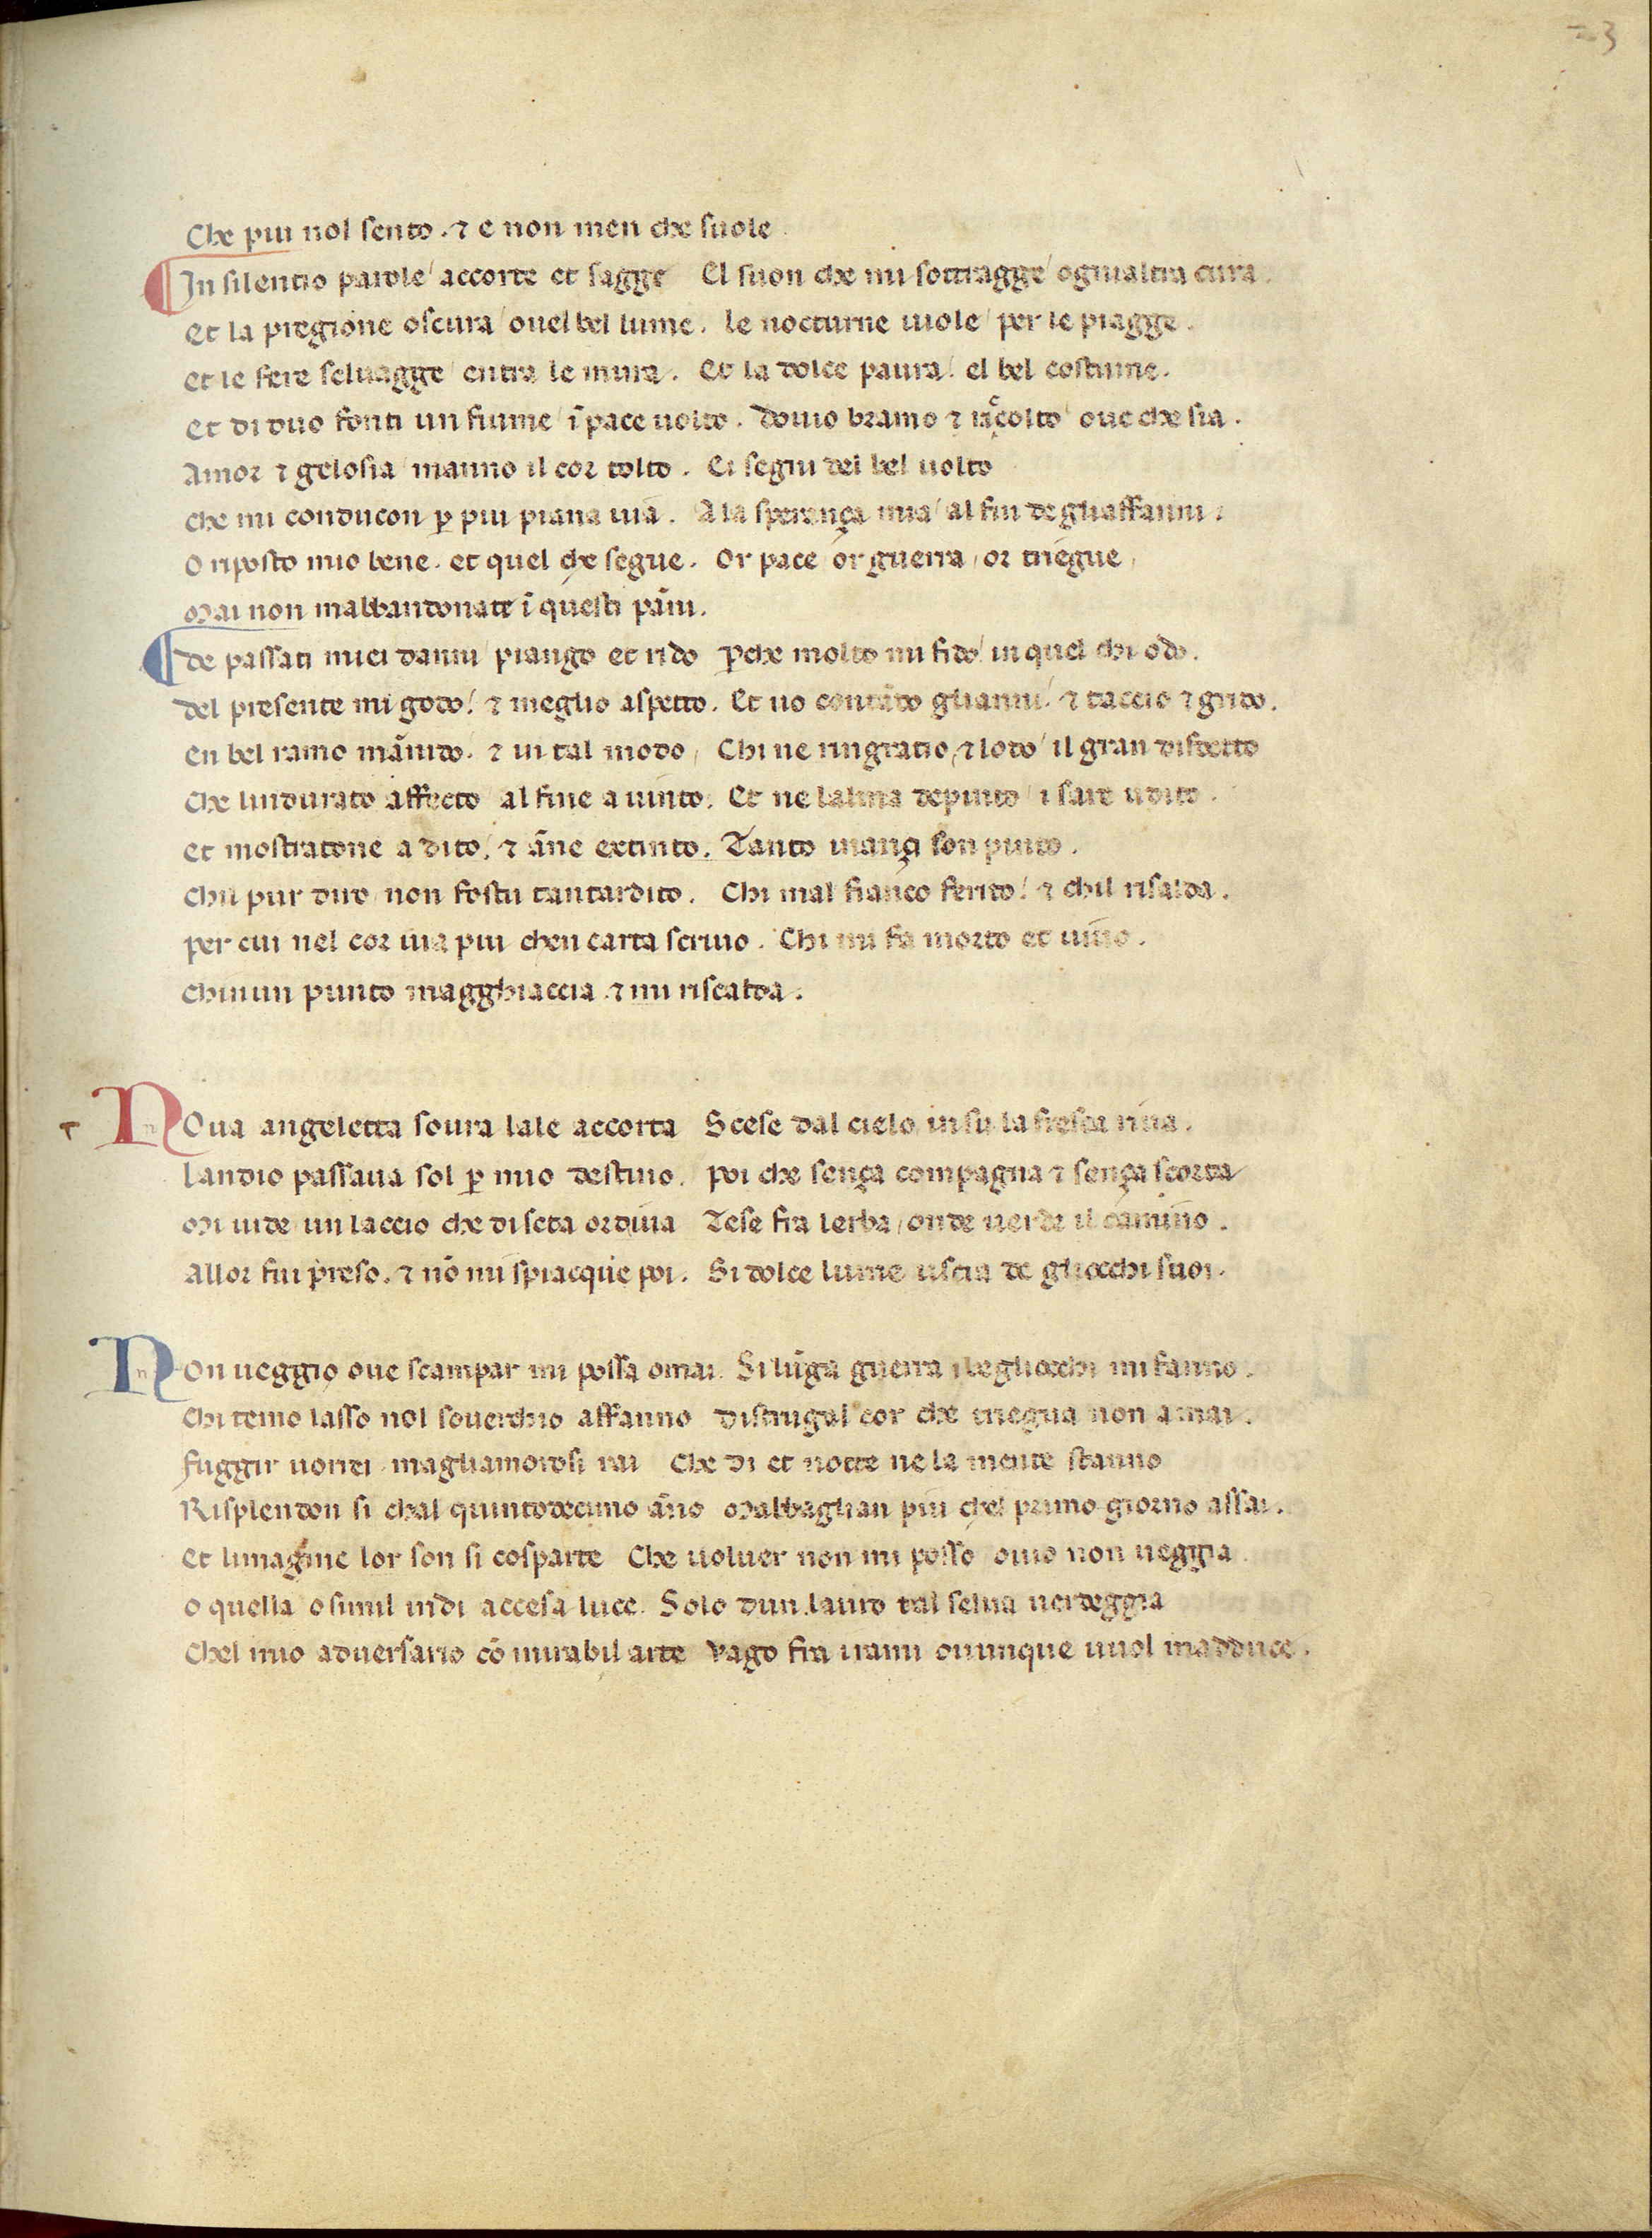 23
Che piu nol sento. ⁊ e non men che suole.
In silentio parole/ accorte et sagge El suon che mi sottragge/ ogni altra cura.
Et la pregione oscura/ ouel bel lume. le nocturne uiole/ per le piagge.
et le fere seluagge/ entra le mura. Et la dolce paura/ el bel costume.
Et di duo fonti un fiume/ ī pace uolto. Douio bramo ⁊ racolto/ oue che sia.
Amor ⁊ gelosia/ manno il cor tolto. Ei segni del bel uolto
che mi conducon ꝑ piu piana uia. A la sperança mia/ al fin de gliaffanni.
O riposto mio bene. et quel che segue. Or pace or guerra/ or triegue/
Mai non mabbandonate ī questi pāni.
de passati miei danni/ piango et rido ꝑche molto mi fido/ in quel chi odo.
del presente mi godo/ ⁊ meglio aspetto. Et uo contādo glianni/ ⁊ taccio ⁊ grido.
En bel ramo mānido. ⁊ in tal modo/ Chi ne ringratio/ ⁊ lodo/ il gran disdetto
Che lindurato affecto/ al fine a uinto. Et ne lalma depinto/ i sare udito.
et mostratone a dito/ ⁊ āne extinto. Tanto inançi son pinto.
Chil pur diro/ non fostu tantardito. Chi mal fianco ferito/ ⁊ chil risalda.
per cui nel cor uia piu chen carta scriuo. Chi mi fa morto et uiuo.
Chinun punto magghiaccia ⁊ mi riscalda.
NOua angeletta soura lale accorta Scese dal cielo in su la fresca riua.
Landio passaua sol ꝑ mio destino. poi che sença compagna ⁊ sença scorta
Mi uide/ un laccio che di seta ordiua Tese fra lerba/ onde uerde il camino.
Allor fui preso. ⁊ nō mi spiacque poi. Si dolce lume uscia de gliocchi suoi.
NOn ueggio oue scampar mi possa omai. Si lūga guerra i begliocchi mi fanno.
Chi temo lasso nol souerchio affanno distrugal cor che triegua non a mai.
fuggir uorrei. magliamorosi rai Che di et notte ne la mente stanno
Risplendon si chal quintodecimo āno Mabbaglian piu chel primo giorno assai.
Et limagine lor son si cosparte Che uoluer non mi posso ouio non ueggia
o quella o simil indi accesa luce. Solo dun lauro tal selua uerdeggia
Chel mio aduersario cō mirabil arte Vago fra i rami ouunque uuol madduce.